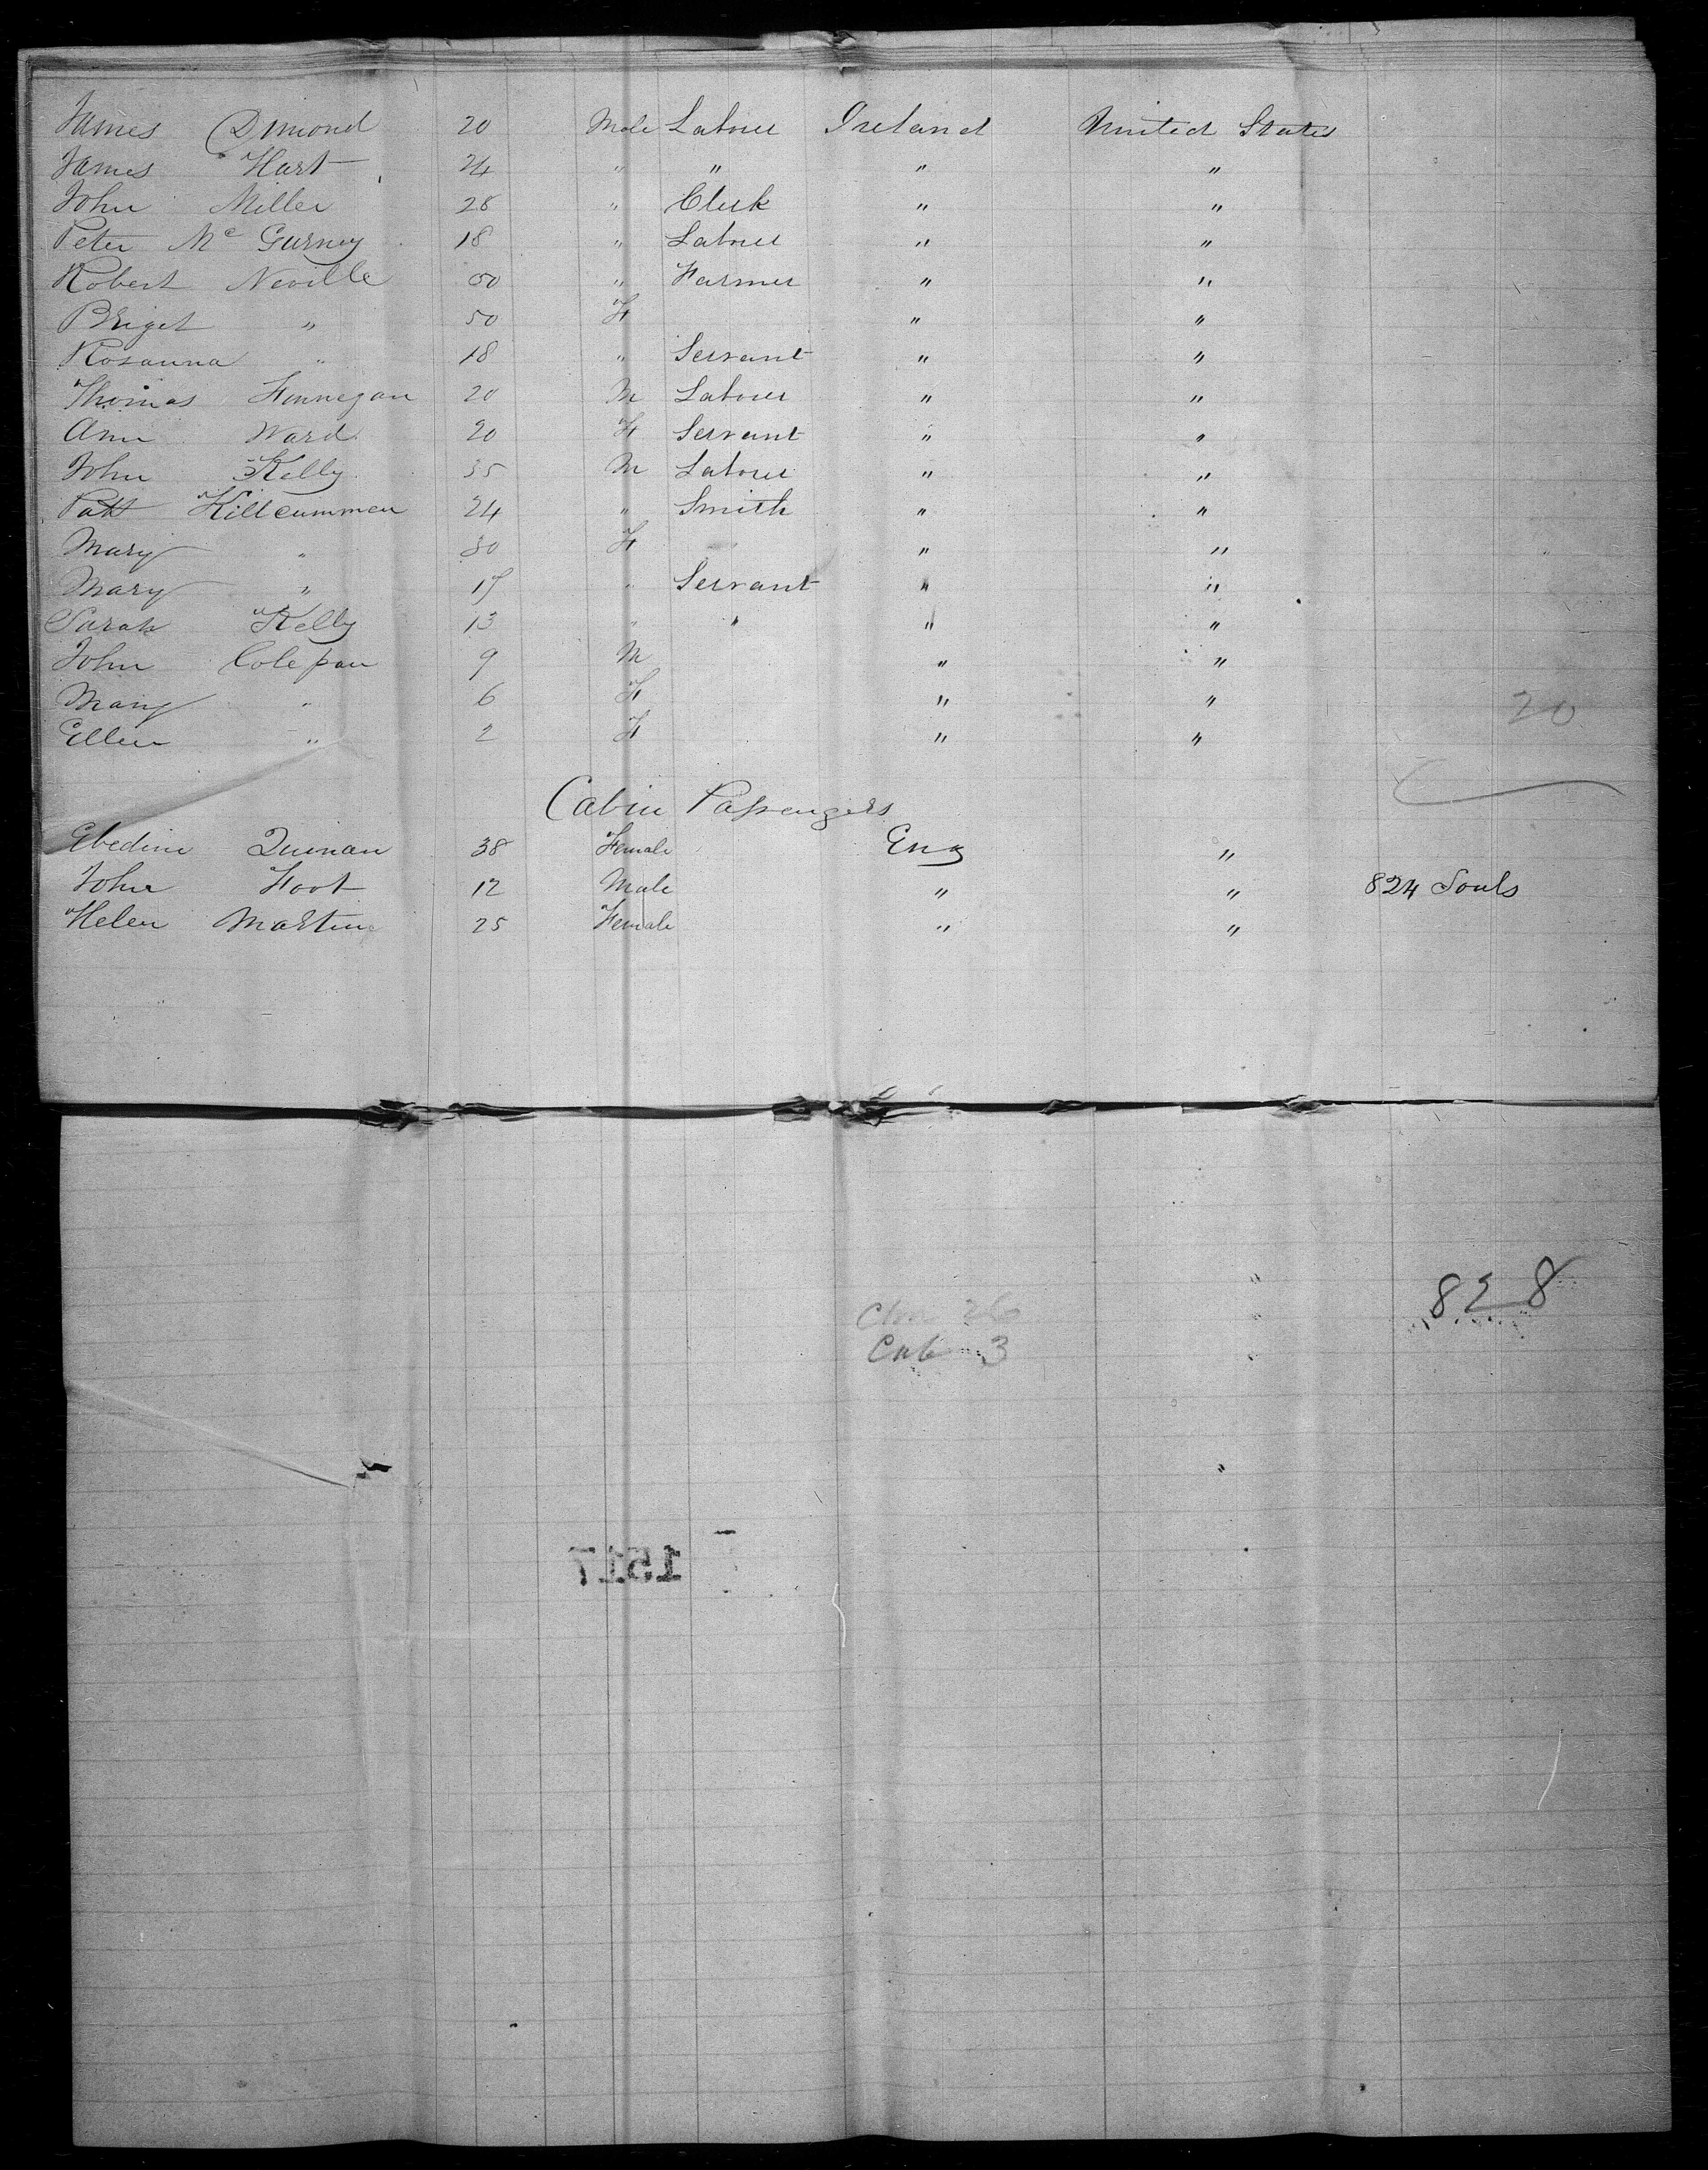 James Dimond 20 Male Laborer Ireland United States
James Hart 24 " " " "
John Miller 28 " Clerk " "
Peter Mc Gurney 18 " Laborer " "
Robert Neville 50 " Farmer " "
Briget " 50 F " "
Rosanna " 18 " Servant " "
Thomas Finnegan 20 M Laborer " "
Ann Ward 20 F Servant " "
John Kelly 35 M Laborer " "
Patt Killcummen 24 " Smith " "
Mary " 30 F " "
Mary " 17 " Servant " "
Sarah Kelly 13 " " " "
John 9 M " "
Mary " 6 F " " 20
Ellen " 2 F " "
Cabin Passengers
Quinan 38 Female Eng "
John Foot 12 Male " " 824 Souls
Helen Martin 25 Female " "
828
26
Cab 3
1517